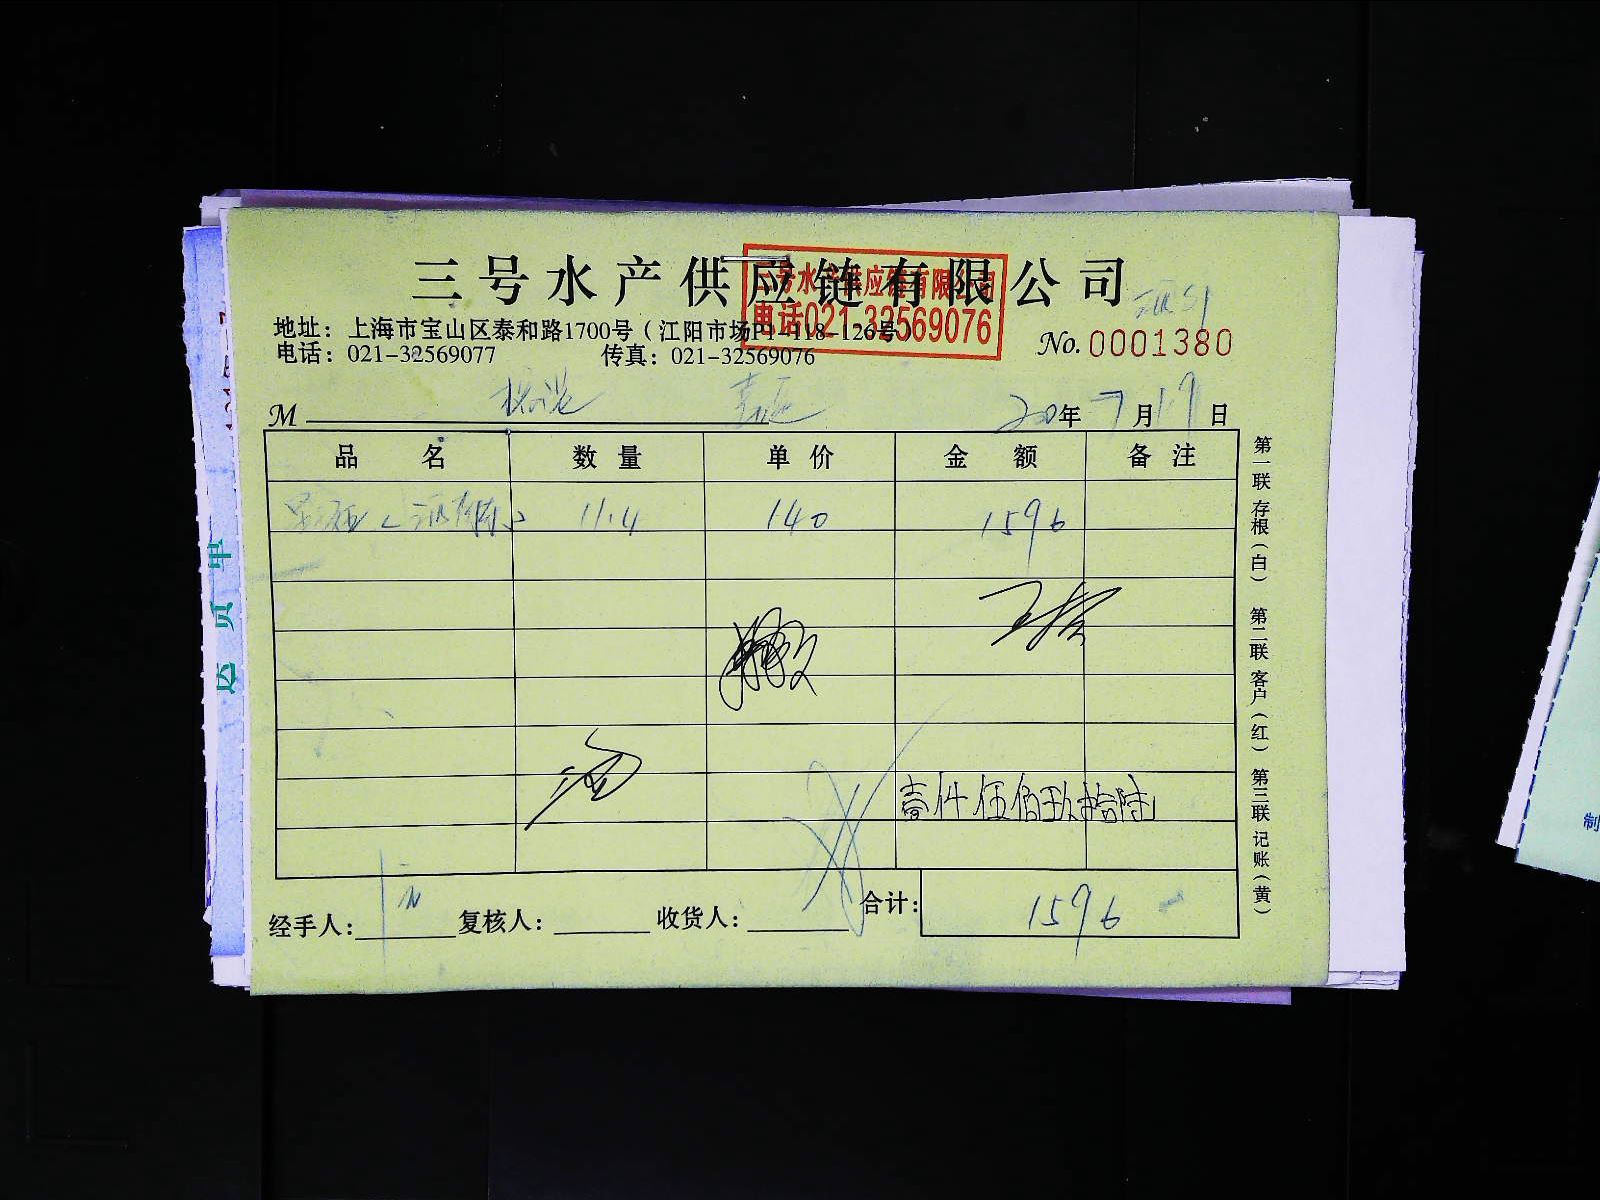 三号水产供应链有限公司
三号水产供应链有限公司
电话021-32569076
地址：上海市宝山区泰和路1700号（江阳市场P1-118-126号）
电话：021-32569077 传真：021-32569076
No. 0001380
M
年7月19日
品名 数量 单价 金额 备注
11.4 140 1596
壹仟伍佰玖拾陆
经手人： 复核人： 收货人： 合计： 1596
第一联 存根（白） 第二联 客户（红） 第三联 记账（黄）
制